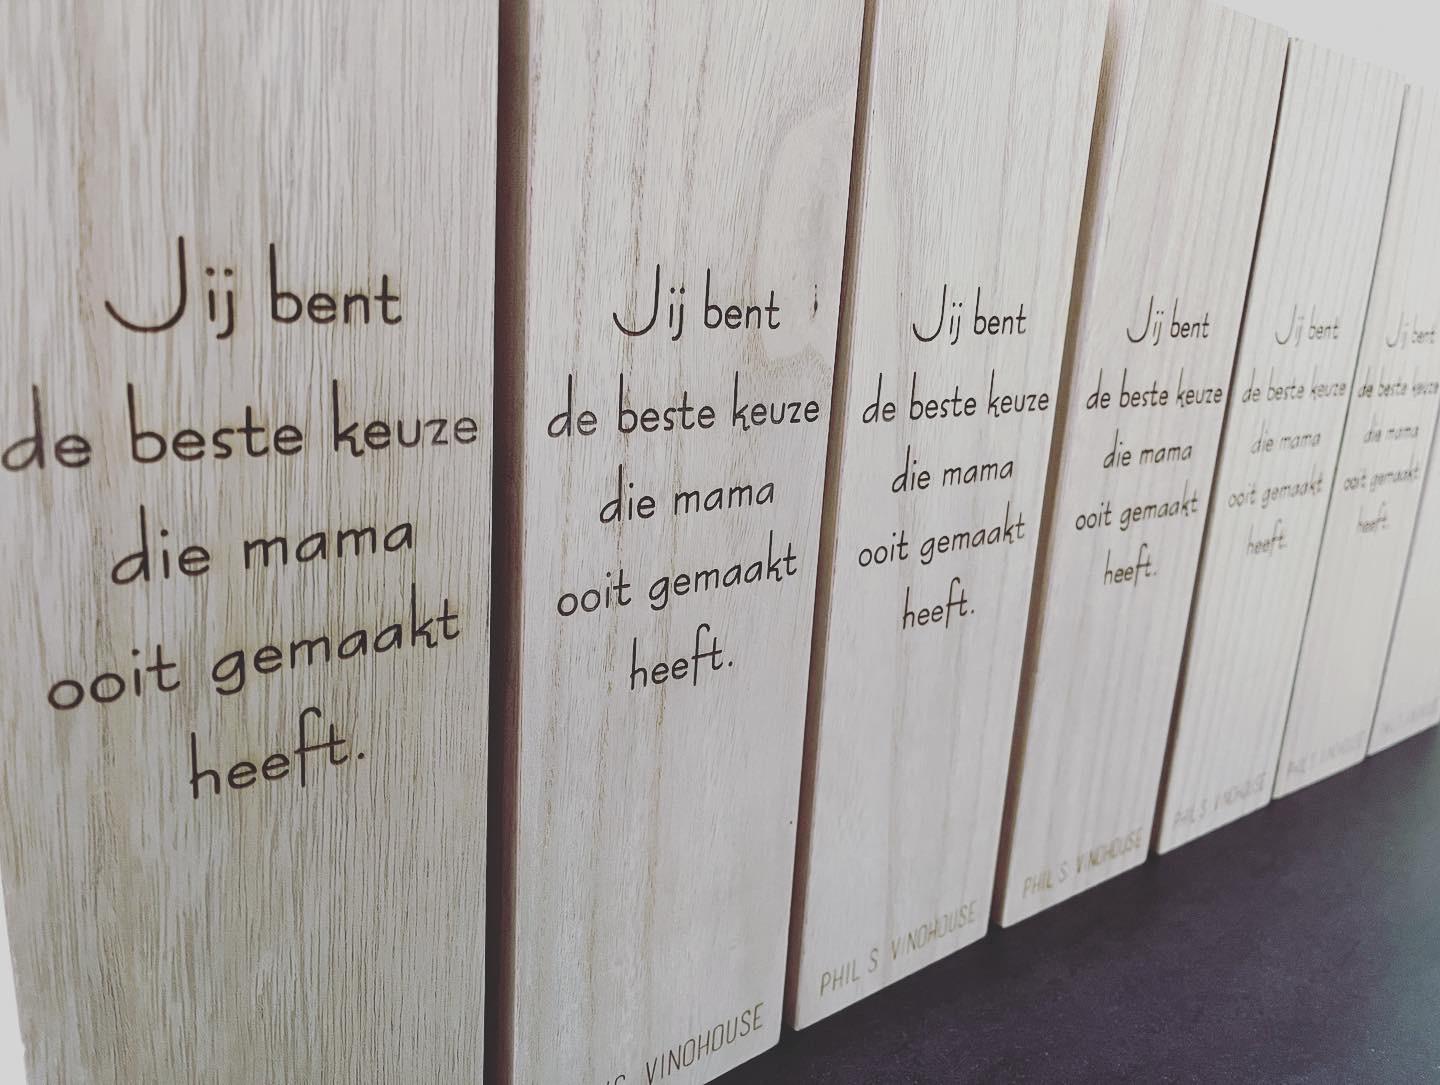 Jij bent
de beste keuze
die mama
ooit gemaakt
heeft.
Jij bent
de beste keuze
die mama
ooit gemaakt
heeft.
VINOHOUSE
Jij bent
de beste keuze
die mama
ooit gemaakt
heeft.
PHIL S VINOHOUSE
Jij bent
de beste keuze
die mama
ooit gemaakt
heeft.
PHIL S VINOHOUSE
Jij bent
de beste keuze
die mama
ooit gemaakt
heeft.
PHIL S VINOHOUSE
Jij bent
de beste keuze
die mama
ooit gemaakt
heeft.
PHIL S VINOHOUSE